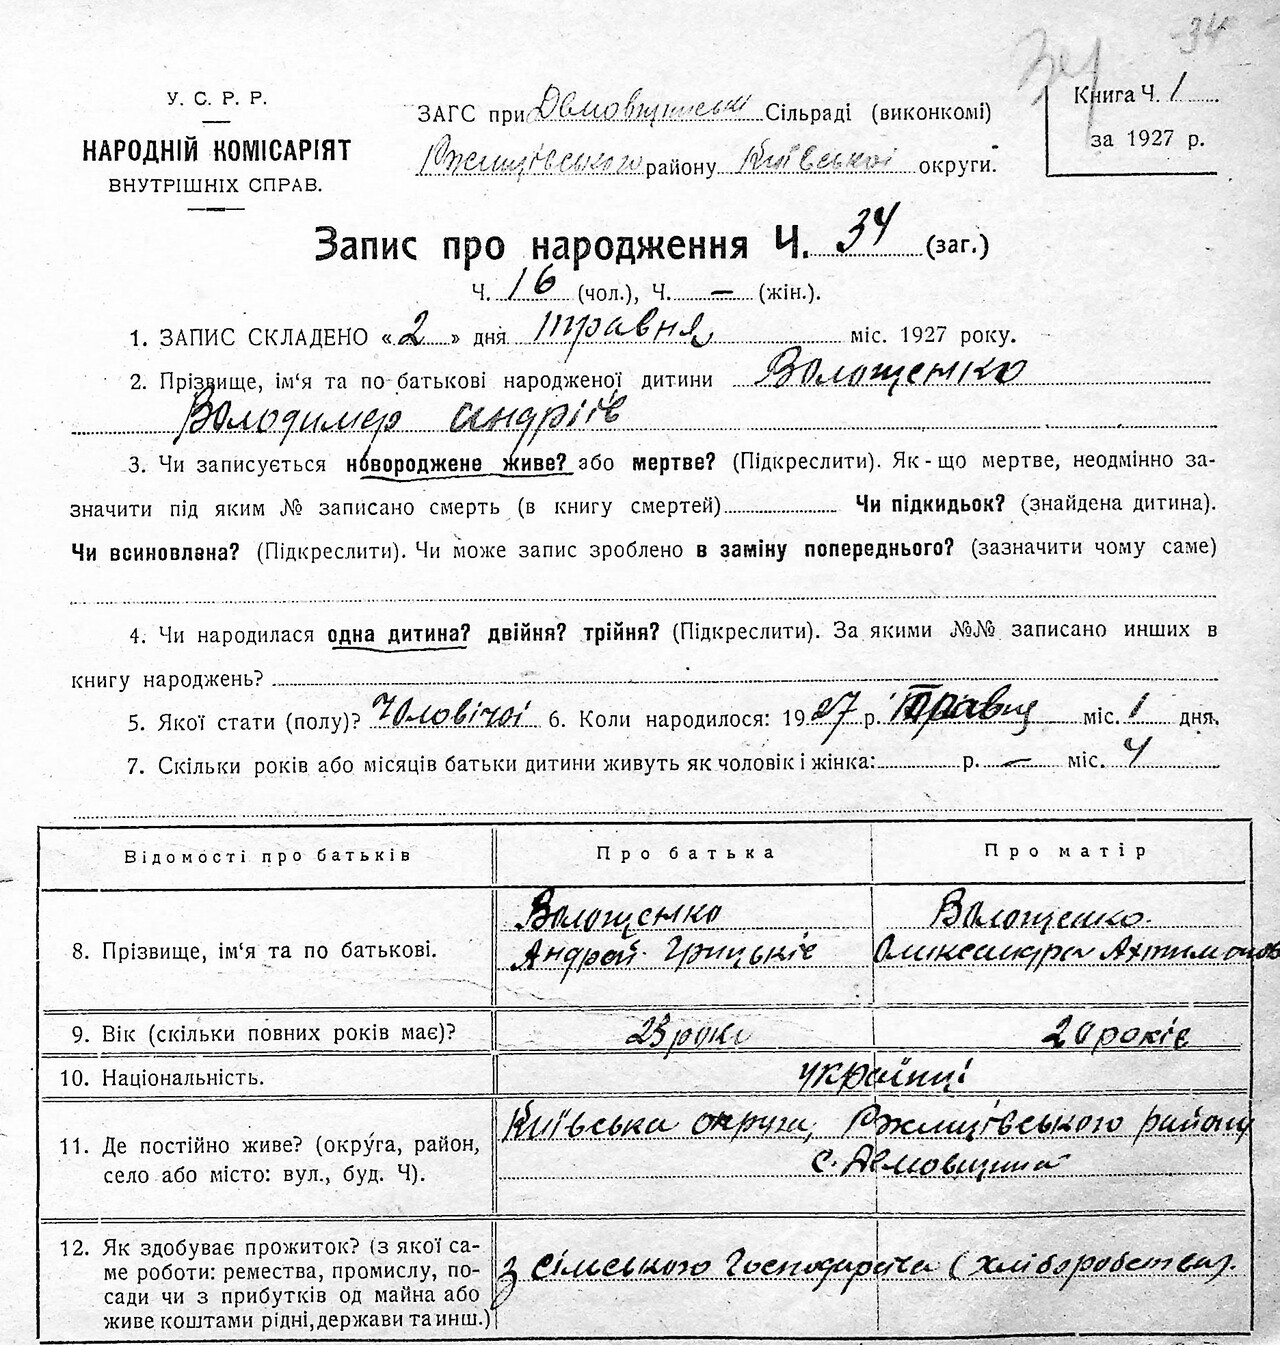 34
У. С. Р. Р.
НАРОДНІЙ КОМІСАРІЯТ
ВНУТРІШНІХ СПРАВ.
ЗАГС при Демовщинські Сільраді (виконкомі)
Ржищівського району Київської округи.
Книга Ч. 1
за 1927 р.
Запис про народження Ч. 34 (заг.)
Ч. 16 (чол.), Ч. — (жін.).
1. ЗАПИС СКЛАДЕНО «2» дня травня міс. 1927 року.
2. Прізвище, ім‘я та по батькові народженої дитини Волощенко
Володимер Андріїв
3. Чи записується новороджене живе? або мертве? (Підкреслити). Як-що мертве, неодмінно за-
значити під яким № записано смерть (в книгу смертей) Чи підкидьок? (знайдена дитина).
Чи всиновлена? (Підкреслити). Чи може запис зроблено в заміну попереднього? (зазначити чому саме)
4. Чи народилася одна дитина? двійня? трійня? (Підкреслити). За якими №№ записано инших в
книгу народжень?
5. Якої стати (полу)? Чоловічої 6. Коли народилося: 1927 р. Травня міс. 1 дня.
7. Скільки років або місяців батьки дитини живуть як чоловік і жінка: р. — міс. 4
Відомості про батьків Про батька Про матір
8. Прізвище, ім‘я та по батькові. Волощенко Андрей Грицьків Волощенко Олександра
9. Вік (скільки повних років має)? 23 роки 20 років
10. Національність. українці
11. Де постійно живе? (округа, район, село або місто: вул., буд. Ч). Київська округа, Ржищівського району
с. Демовщина
12. Як здобуває прожиток? (з якої са-
ме роботи: ремества, промислу, по-
сади чи з прибутків од майна або
живе коштами рідні, держави та инш.)
з сімського Господарства (хліборобства).